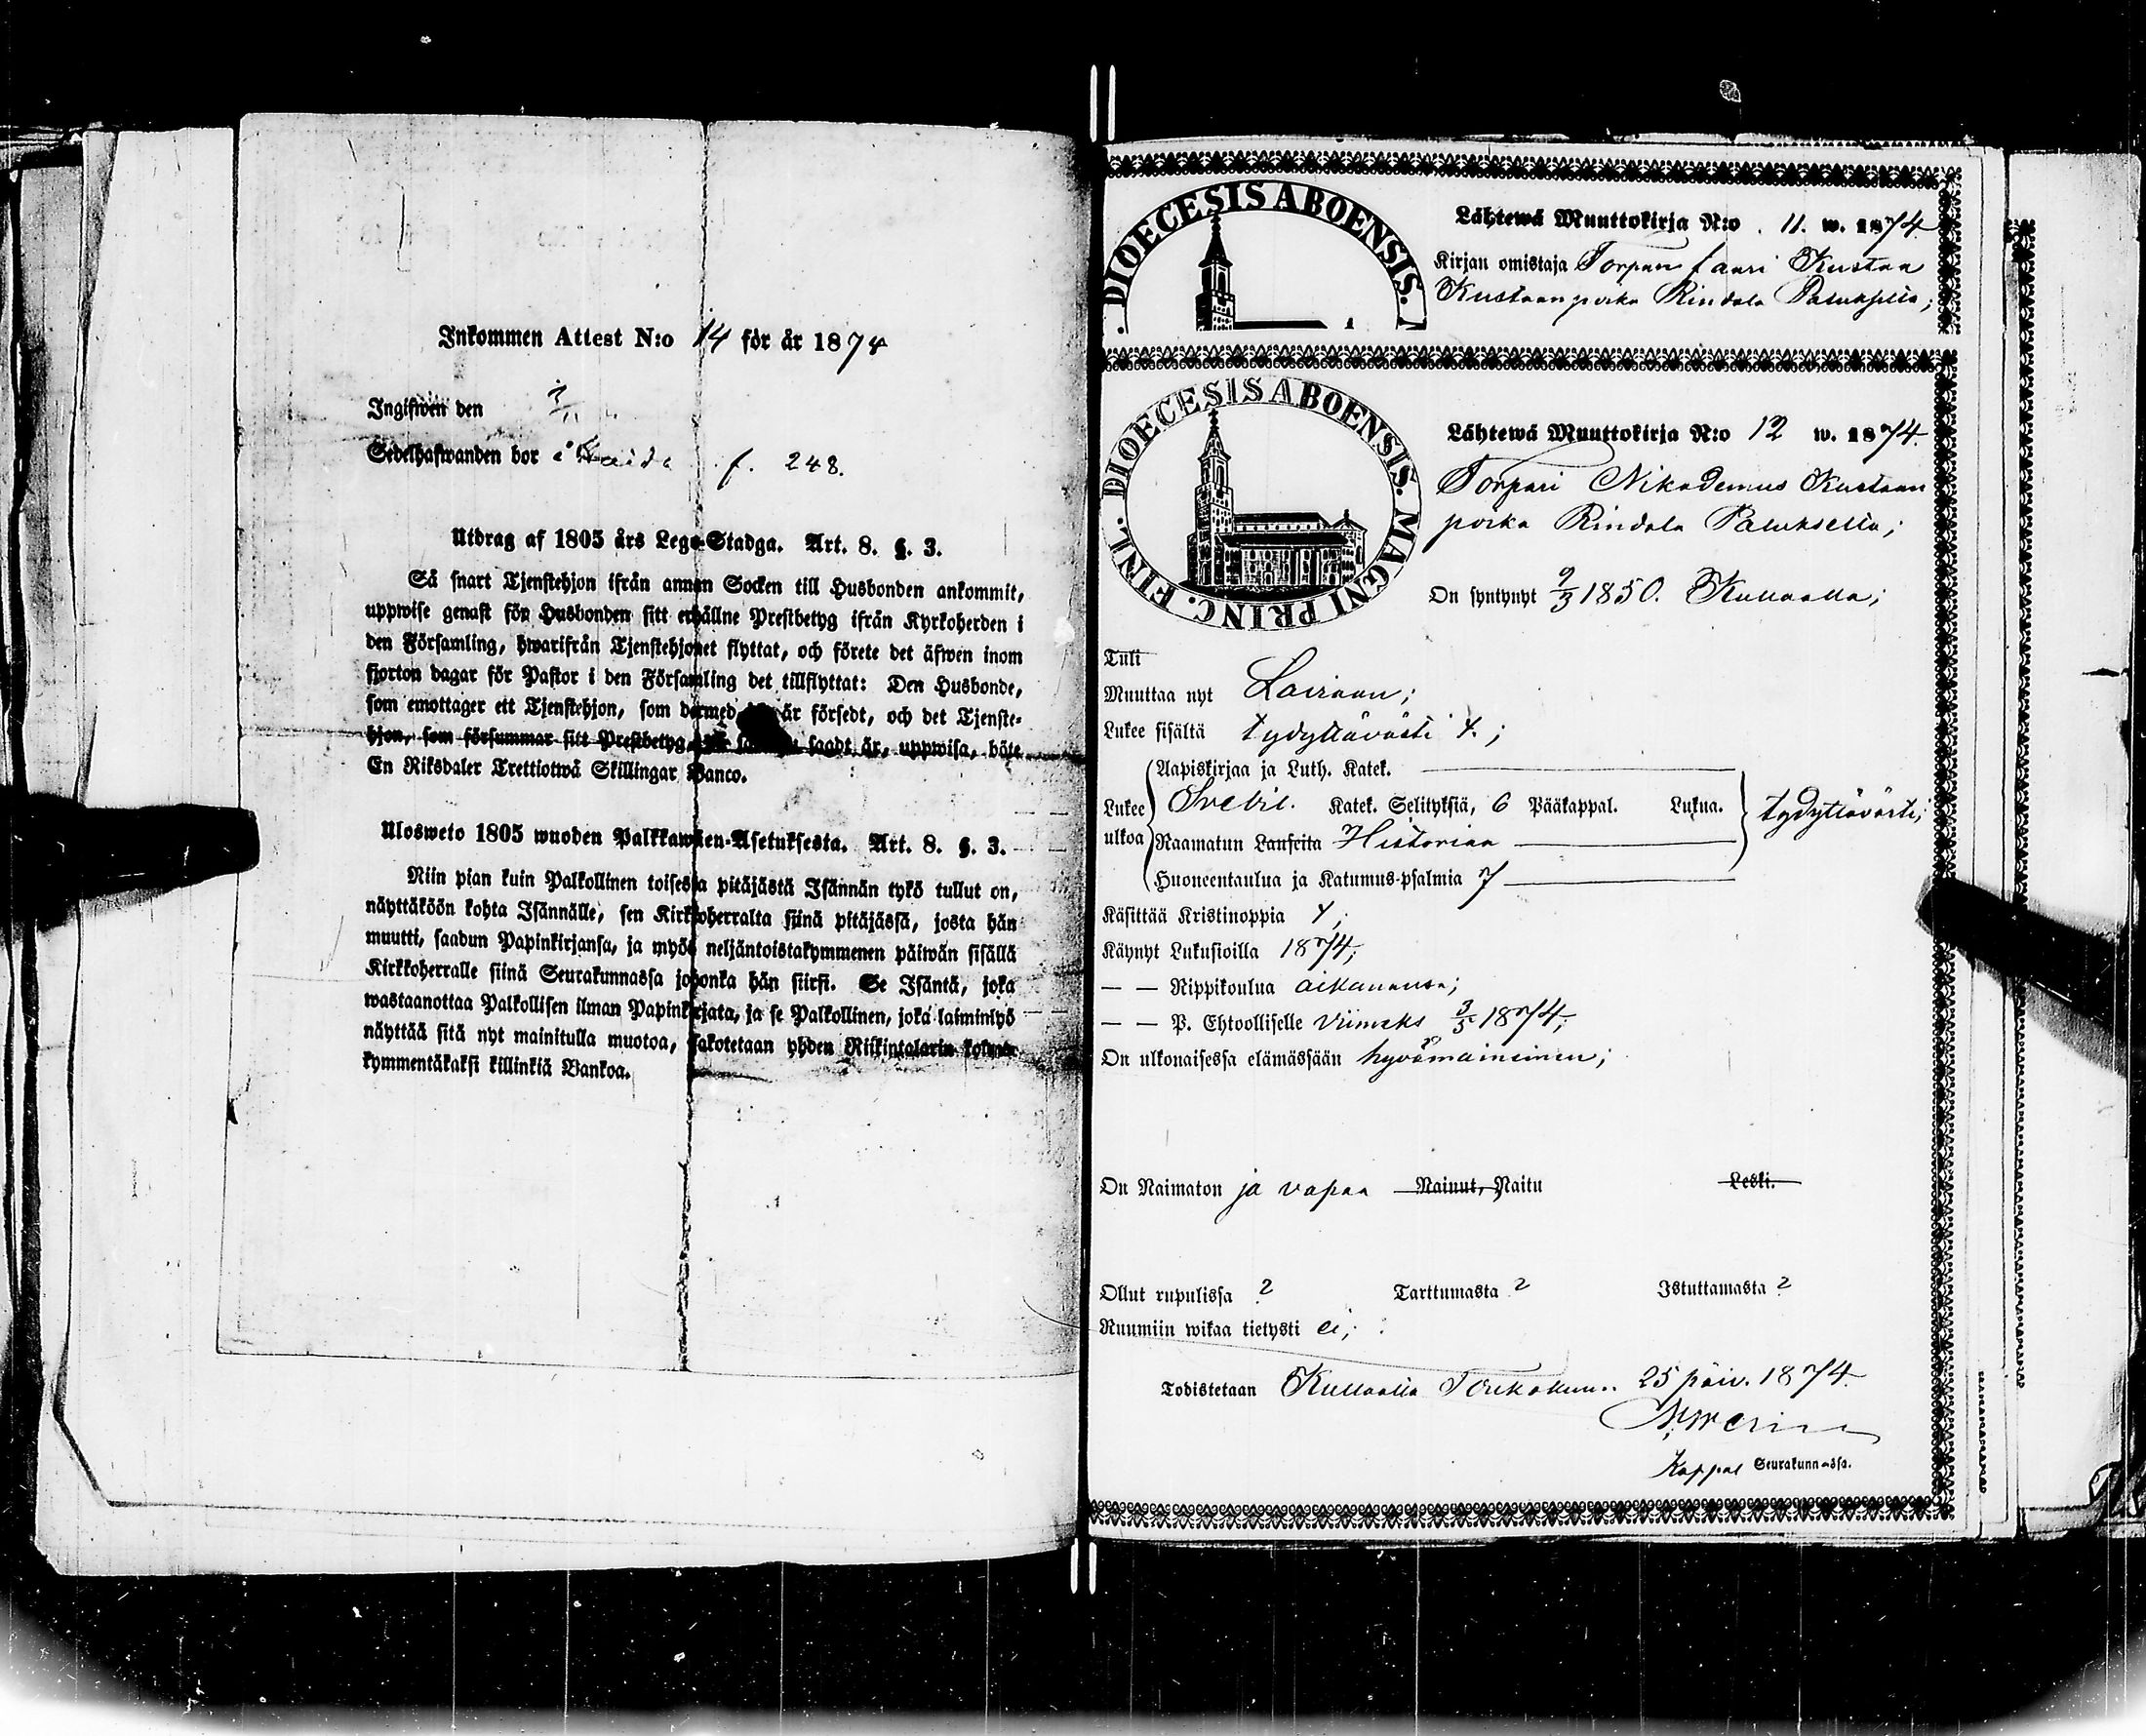 Inkommen Attest N:o 14 för år 1874
Ingifwen den
Sedelhafwanden bor i f. 248.
Utdrag af 1805 års Lego-Stadga. Art. 8. §. 3.
Så snart Tjenstehjon ifrån annan Socken till Husbonden ankommit,
uppwise genast för Husbonden sitt erhållne Prestbetyg ifrån Kyrkoherden i
den Församling, hwarifrån Tjenstehjonet flyttat, och förete det äfwen inom
fjorton dagar för Pastor i den Församling det tillflyttat: Den Husbonde,
som emottager ett Tjenstehjon, som dermed är försedt, och det Tjenste-
hjon, som försummar sitt Prestbetyg, sagdt är, uppwisa, böte
En Riksdaler Trettiotwå Skillingar Banco.
Ulosweto 1805 wuoden Palkkawäen-Asetuksesta. Art. 8. §. 3.
Niin pian kuin Palkollinen toisesta pitäjästä Isännän tykö tullut on,
näyttäköön kohta Isännälle, sen Kirkkoherralta siinä pitäjässä, josta hän
muutti, saadun Papinkirjansa, ja myös neljäntoistakymmenen päiwän sisällä
Kirkkoherralle siinä Seurakunnassa johonka hän siirsi. Se Isäntä, joka
wastaanottaa Palkollisen ilman Papinkirjata, ja se Palkollinen, joka laiminlyö
näyttää sitä nyt mainitulla muotoa, sakotetaan yhden Riikintalarin kolme-
kymmentäkaksi killinkiä Bankoa.
DIOECESIS ABOENSIS.
Lähtewä Muuttokirja N:o 11. w. 1874.
Kirjan omistaja Torpan faari Kustaa
Kustaanpoika Rindala Paluksella;
DIOECESIS ABOENSIS. MAGNI PRINC. FINL.
Lähtewä Muuttokirja N:o 12 w. 1874.
Torpari Nikodemus Kustaan
poika Rindala Paluksella;
On syntynyt 9/3 1850. Kullaalla;
Tuli
Muuttaa nyt Laviaan;
Lukee sisältä tydyttävästi 4.;
Aapiskirjaa ja Luth. Katek.
Lukee ulkoa Svebil. Katek. Selityksiä, 6 Pääkappal. Lukua. tydyttävästi;
Raamatun Lauseita Historiaa
Huoneentaulua ja Katumus-psalmia 7
Käsittää Kristinoppia 4;
Käynyt Lukusioilla 1874;
— — Rippikoulua aikanansa;
— — P. Ehtoolliselle viimeks 3/5 1874;
On ulkonaisessa elämässään hyvämaineinen;
On Naimaton ja vapaa Nainut, Naitu Leski.
Ollut rupulissa ? Tarttumasta ? Istuttamasta ?
Ruumiin wikaa tietysti ei;
Todistetaan Kullaalla Toukokuun. 25 päiv. 1874.
Kappal Seurakunnassa.